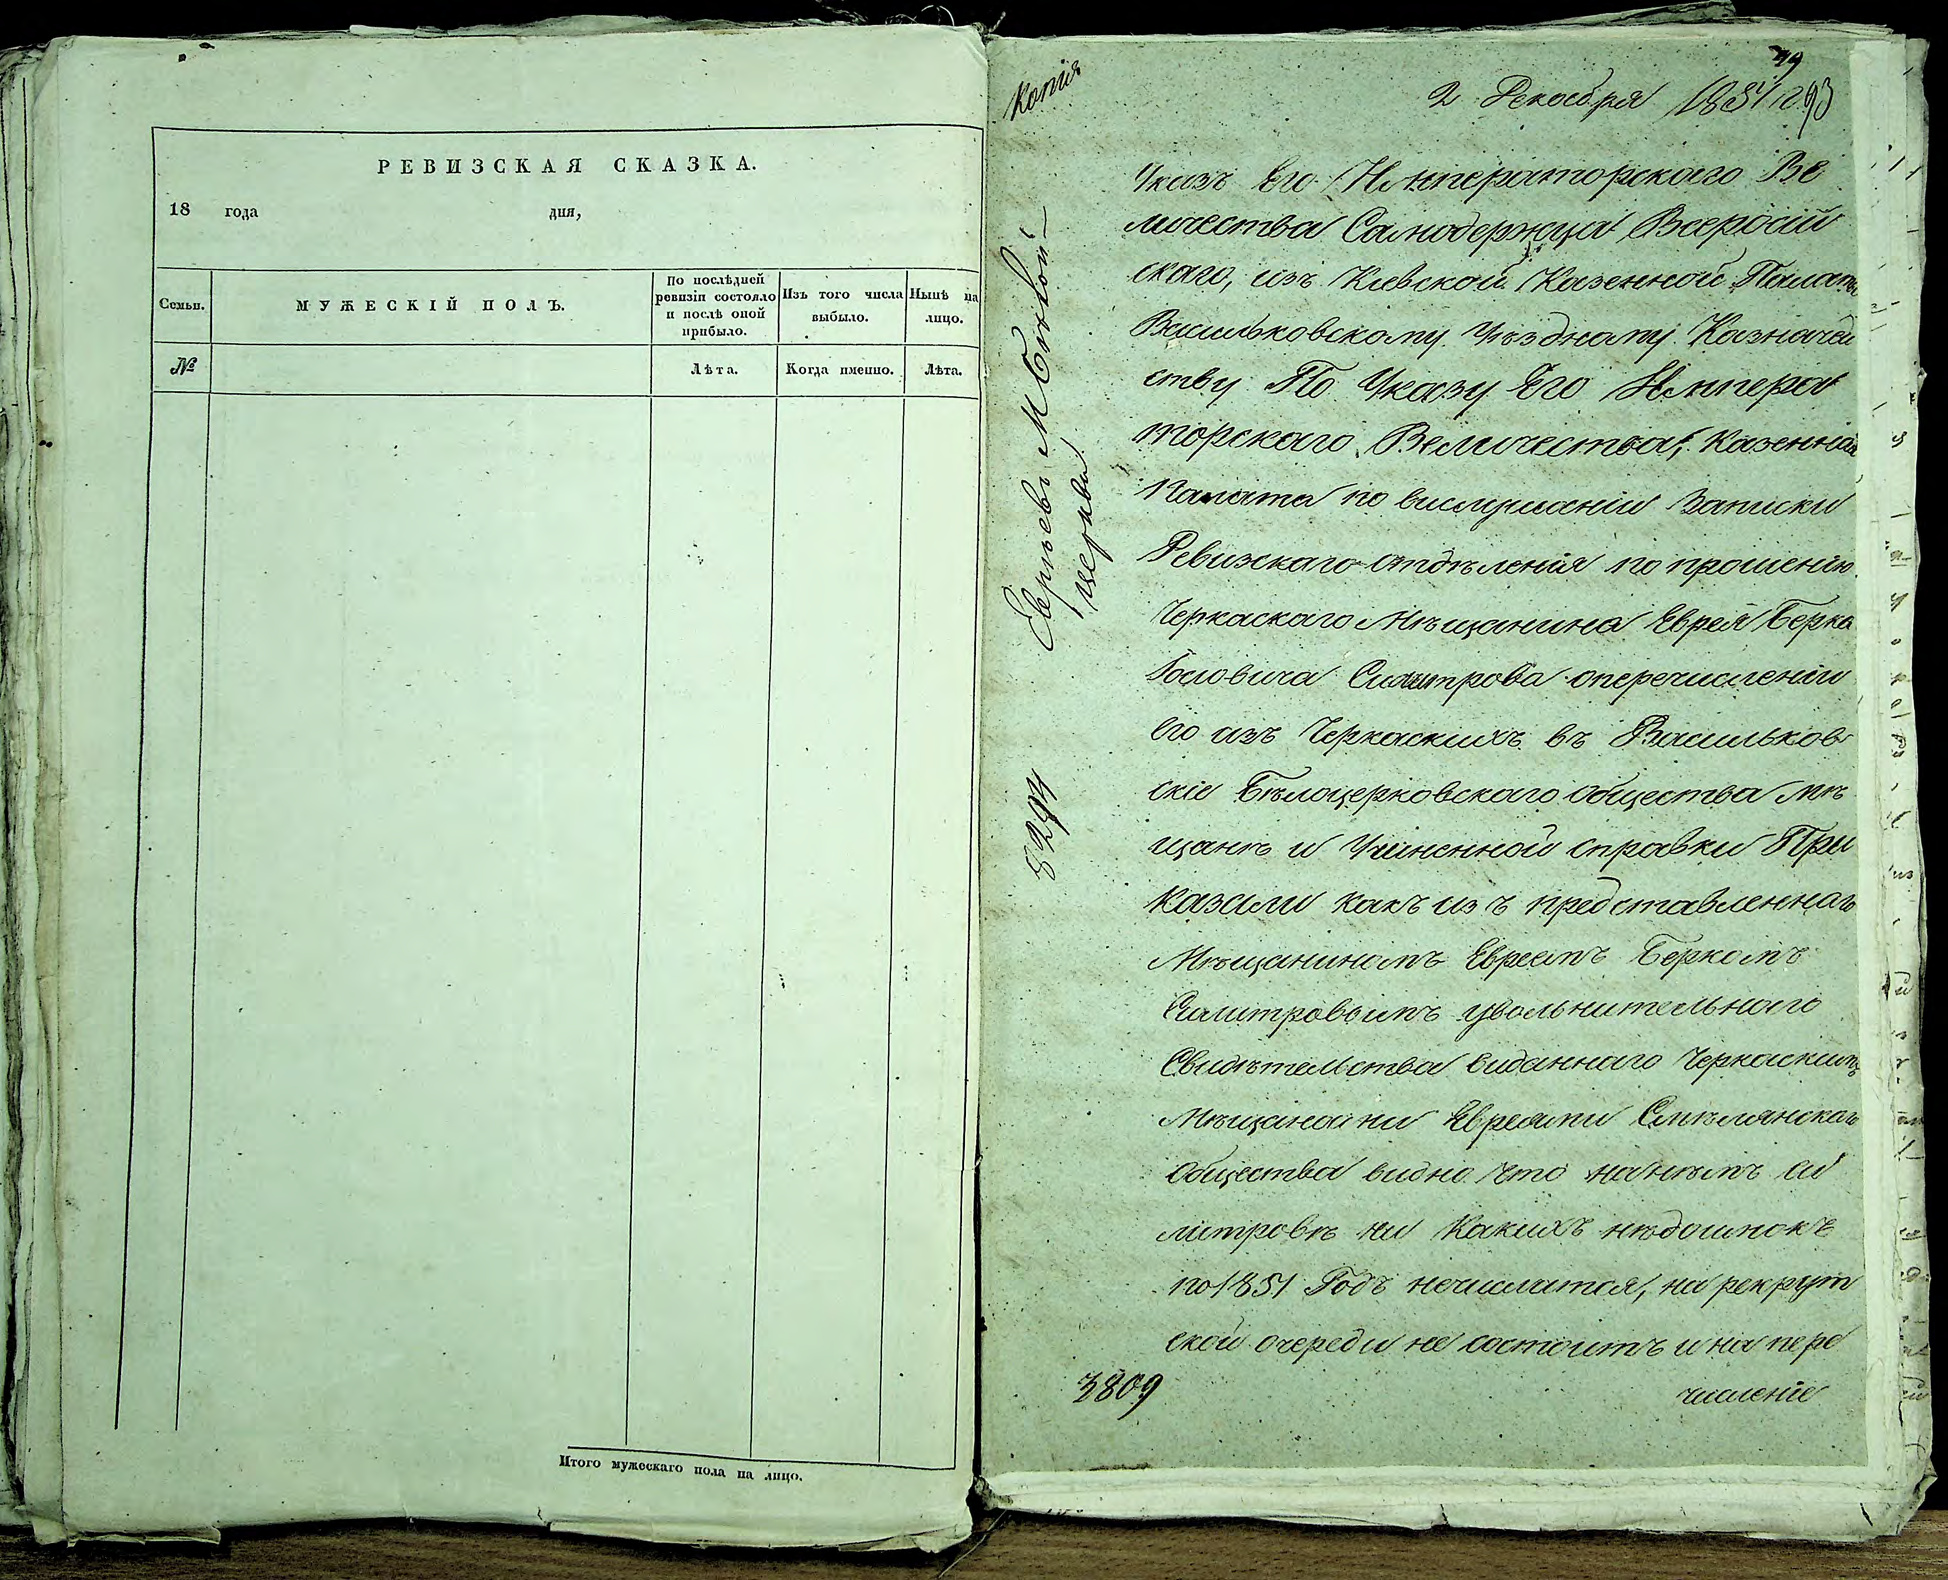 РЕВИЗСКАЯ СКАЗКА.
18 года дня,
Семьи.
МУЖЕСКІЙ ПОЛЪ.
По послѣдней
ревизіи состояло
и послѣ оной
прибыло.
Изъ того числа
выбыло.
Нынѣ на
лицо.
№
Лѣта.
Когда именно.
Лѣта.
Итого мужескаго пола на лицо.
Копія
2 Декабря 1851 г
Указъ Его Императорскаго Ве
личества Самодержца Всеросій
скаго, изъ Кіевской Казенной Палаты
Васильковскому Уѣздному Казначей
ству. По Указу Его Импера
торскаго Величества, Казенная
Палата по выслушаніи Записки
Ревизскаго отдѣленія по прошенію
Черкаскаго мѣщанина Еврея Берка
Іословича Силитрова оперечисленіи
его изъ Черкаскихъ въ Васильков
скіе Бѣлоцерковского общества мѣ
щанѣ и Учиненной справки При
казали какъ изъ представленнаго
Мѣщаниномъ Евреемъ Беркомъ
Силитровымъ увольнительнаго
Свидѣтельства виданнаго Черкаскимъ
Мѣщанами Евреями Смѣлянскаго
общества видно что нанѣмъ Си
литровѣ ни Какихъ недоимокъ
по 1851 Годъ нечислится, на рекрут
ской очереди не состоитъ и на пере
численіе
Евреевъ м Бѣлой
церкви
8294
3809